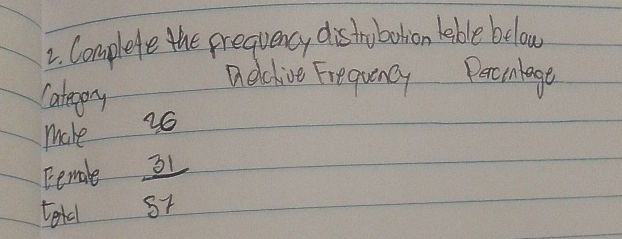 2. Complete the frequency distribution table below
Category Relative Frequency Percentage
Male 26
Female 31
total 57